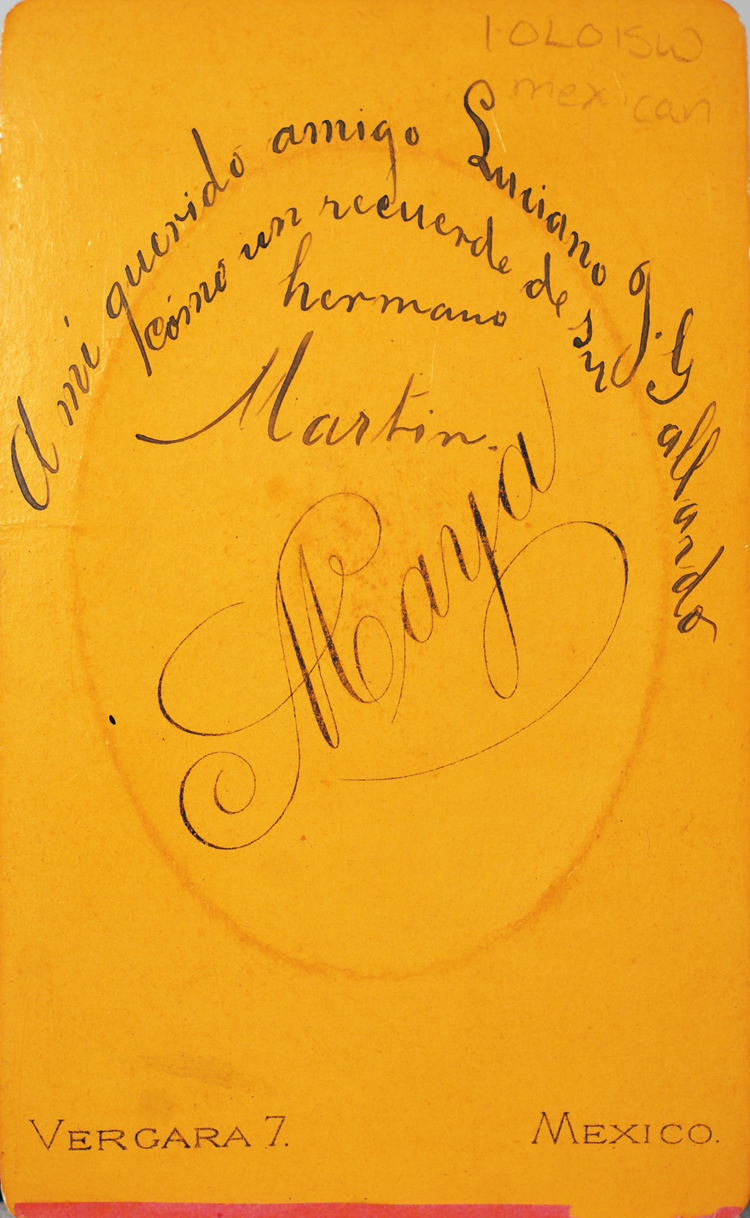 10L015W
mexican
A mi querido amigo Luciano J. Gallardo
cómo un recuerde de su
hermano
Martin.
Maya
VERGARA 7. MEXICO.